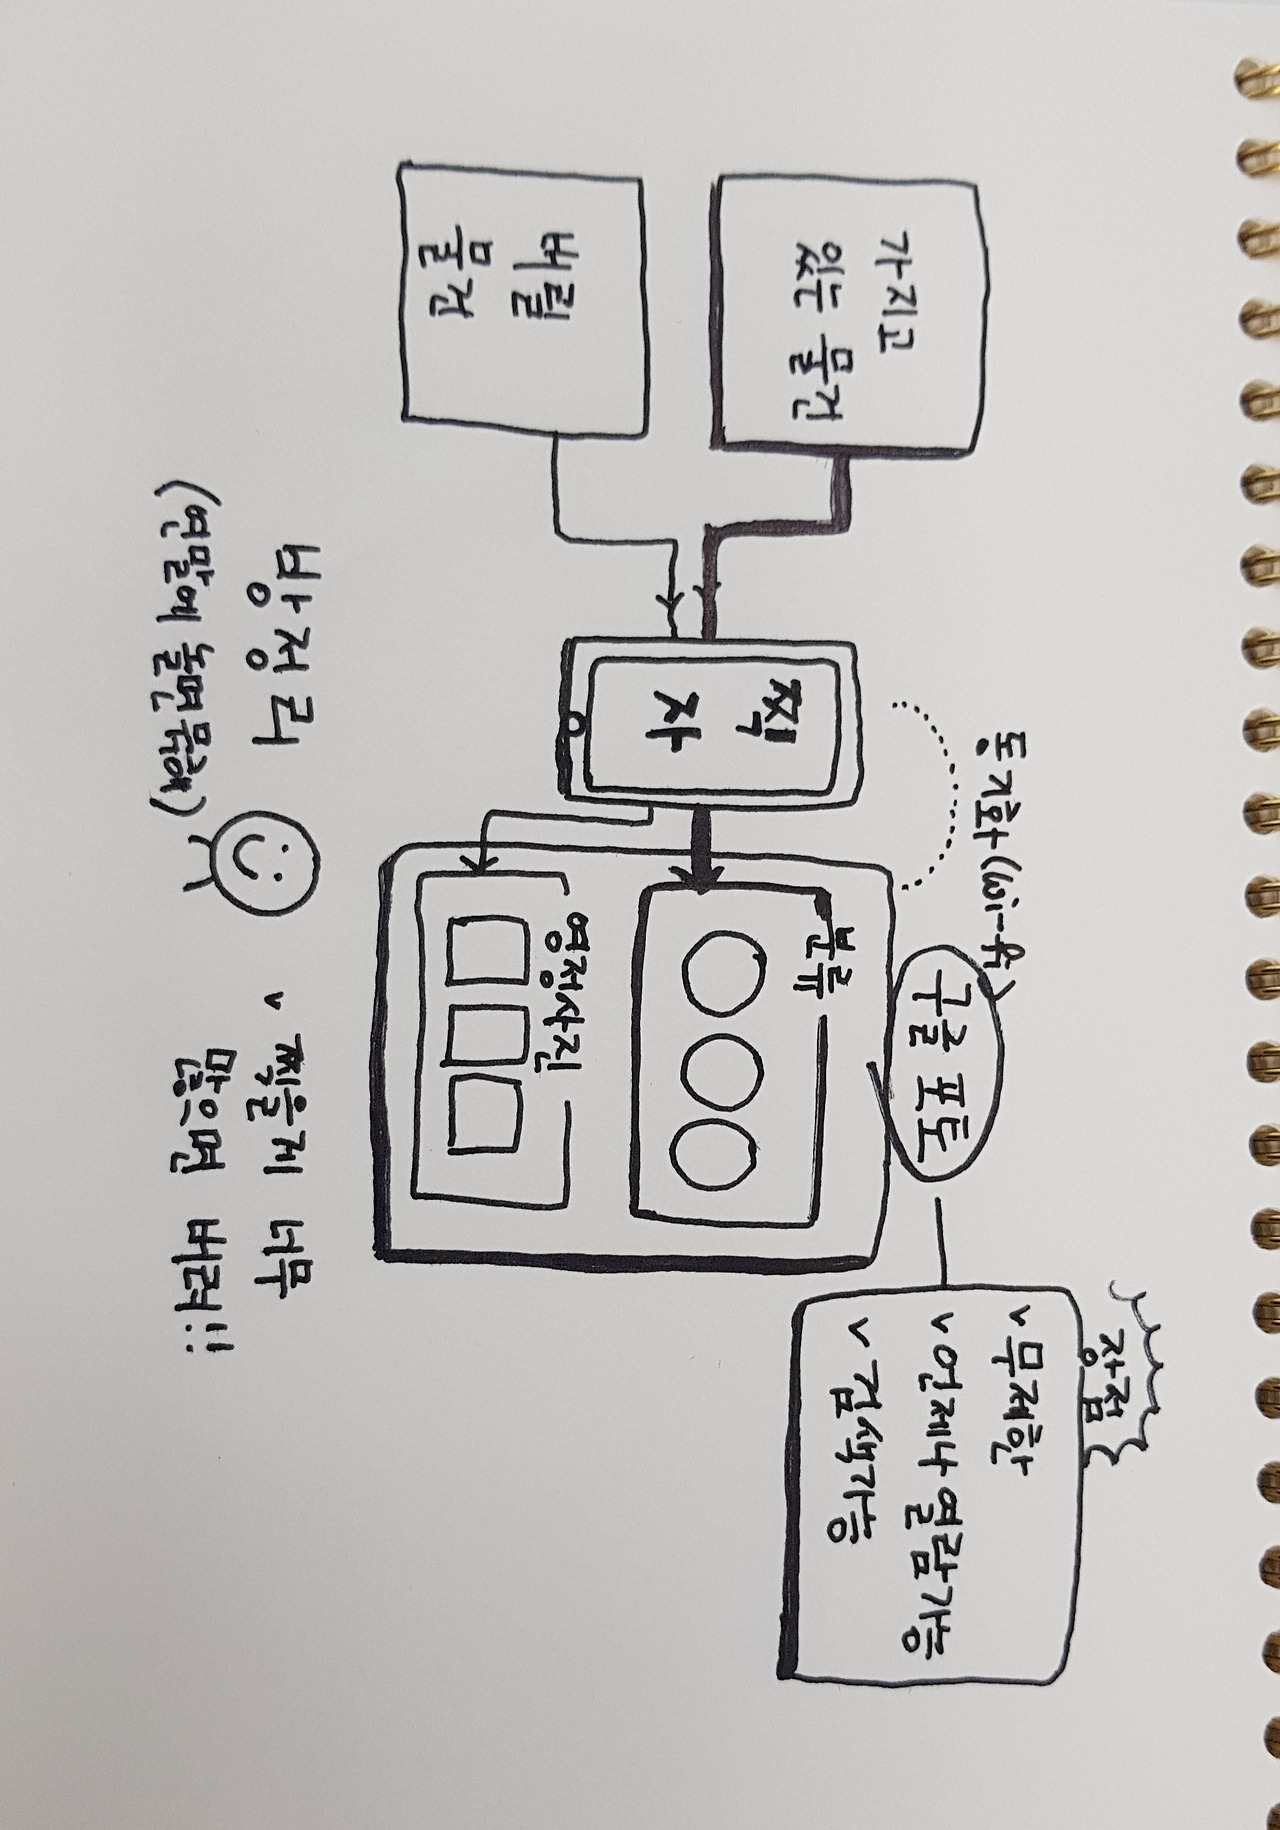 장점
✓ 무제한
✓ 언제나 열람가능
✓ 검색가능
동기화 (wi-fi)
구글 포토
가지고
있는 물건
찍
자
분류
버릴
물건
영정사진
방정리
(연말에 놀면뭐해)
✓ 찍을게 너무
많으면 버려!!